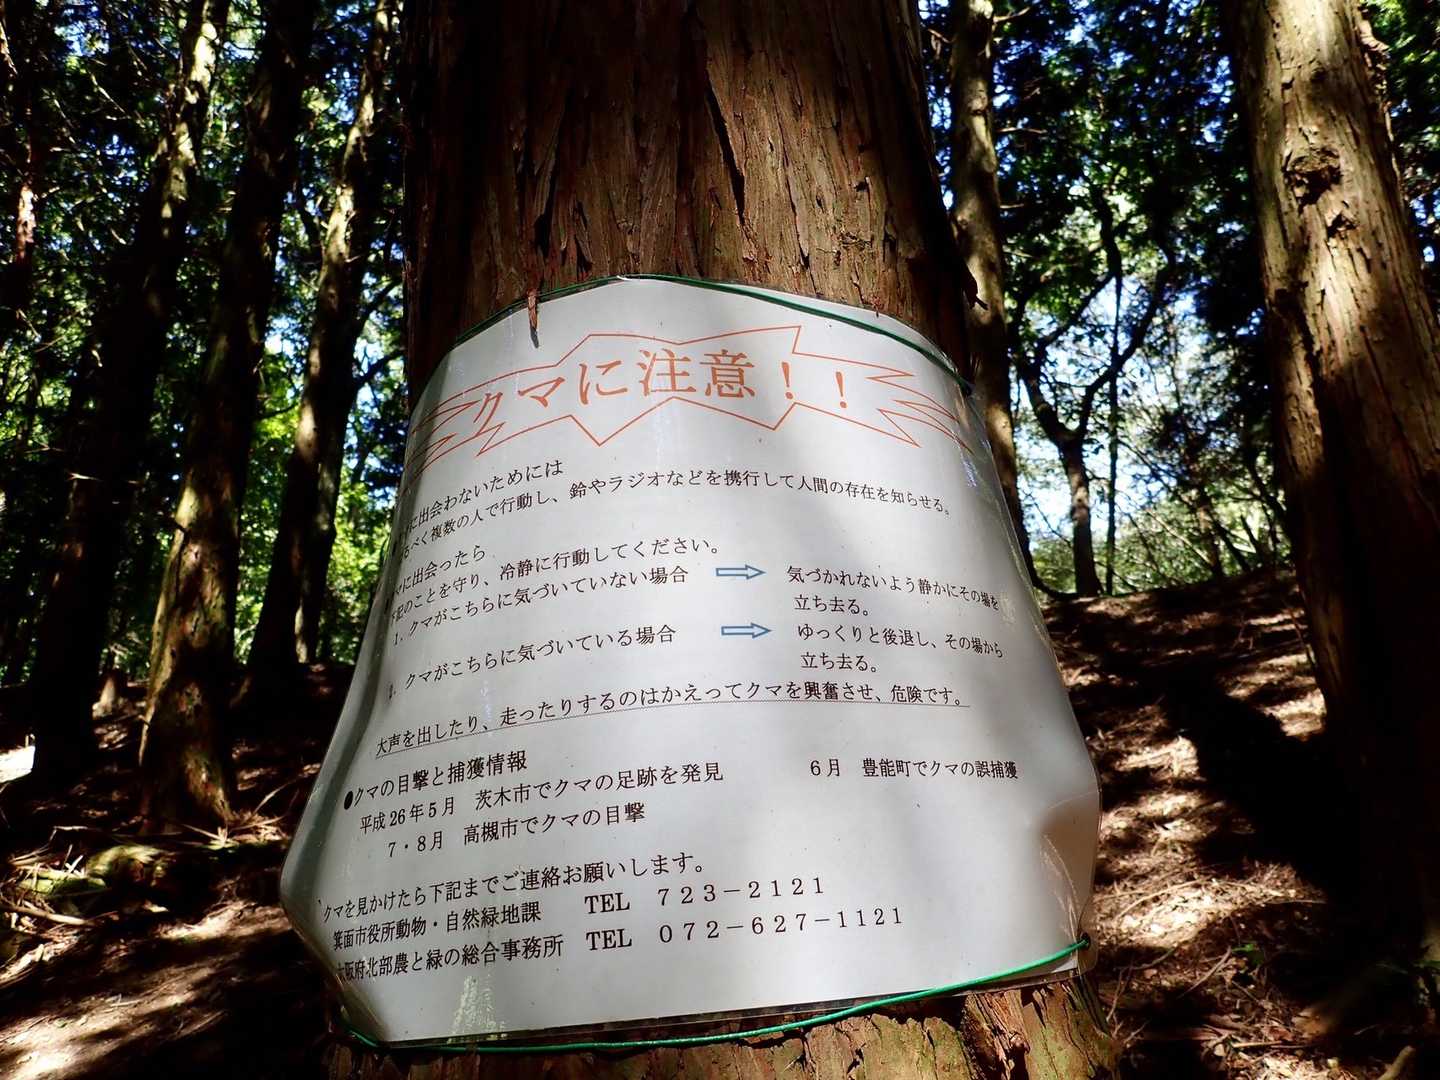 クマに注意！！
に出会わないためには
るべく複数の人で行動し、鈴やラジオなどを携行して人間の存在を知らせる。
マに出会ったら
下記のことを守り、冷静に行動してください。
1．クマがこちらに気づいていない場合 ⇒ 気づかれないよう静かにその場を
立ち去る。
2．クマがこちらに気づいている場合 ⇒ ゆっくりと後退し、その場から
立ち去る。
大声を出したり、走ったりするのはかえってクマを興奮させ、危険です。
●クマの目撃と捕獲情報
平成26年5月 茨木市でクマの足跡を発見 6月 豊能町でクマの誤捕獲
7・8月 高槻市でクマの目撃
クマを見かけたら下記までご連絡お願いします。
箕面市役所動物・自然緑地課 TEL 723－2121
大阪府北部農と緑の総合事務所 TEL 072－627－1121